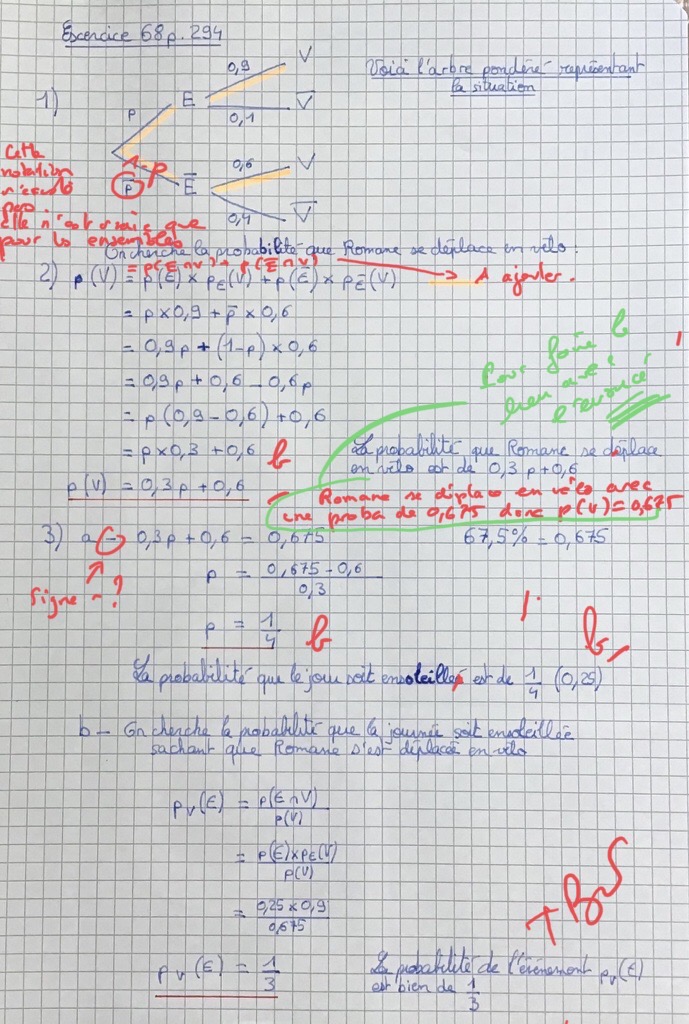 Exercice 68 p. 294
Voilà l'arbre pondéré représentant
la situation
1)
0,9
V
p
E
0,1
V̅
Cette
notation
n'existe
pas
elle n'est vraie que
pour les ensembles
p̅
1-p
E̅
0,6
V
0,4
V̅
On cherche la probabilité que Romane se déplace en vélo :
= p(E∩V) + p(E̅∩V) → à ajouter.
2) p(V) = p(E) × p_E(V) + p(E̅) × p_E̅(V)
= p × 0,9 + p̅ × 0,6
= 0,9p + (1-p) × 0,6
= 0,9p + 0,6 - 0,6p
= p(0,9 - 0,6) + 0,6
= p × 0,3 + 0,6 b
p(V) = 0,3p + 0,6
Pour faire le
lien avec
l'énoncé
La probabilité que Romane se déplace
en vélo est de 0,3p + 0,6
Romane se déplace en vélo avec
une proba de 0,675 donc p(V) = 0,675
3) a - 0,3p + 0,6 = 0,675
67,5% = 0,675
Signe - ?
p = (0,675 - 0,6)/0,3
p = 1/4 b
La probabilité que le jour soit ensoleillé est de 1/4 (0,25)
b - On cherche la probabilité que la journée soit ensoleillée
sachant que Romane s'est déplacée en vélo
p_V(E) = p(E∩V)/p(V)
= p(E)×p_E(V)/p(V)
= 0,25 × 0,9/0,675
p_V(E) = 1/3
TB
La probabilité de l'événement p_V(E)
est bien de 1/3